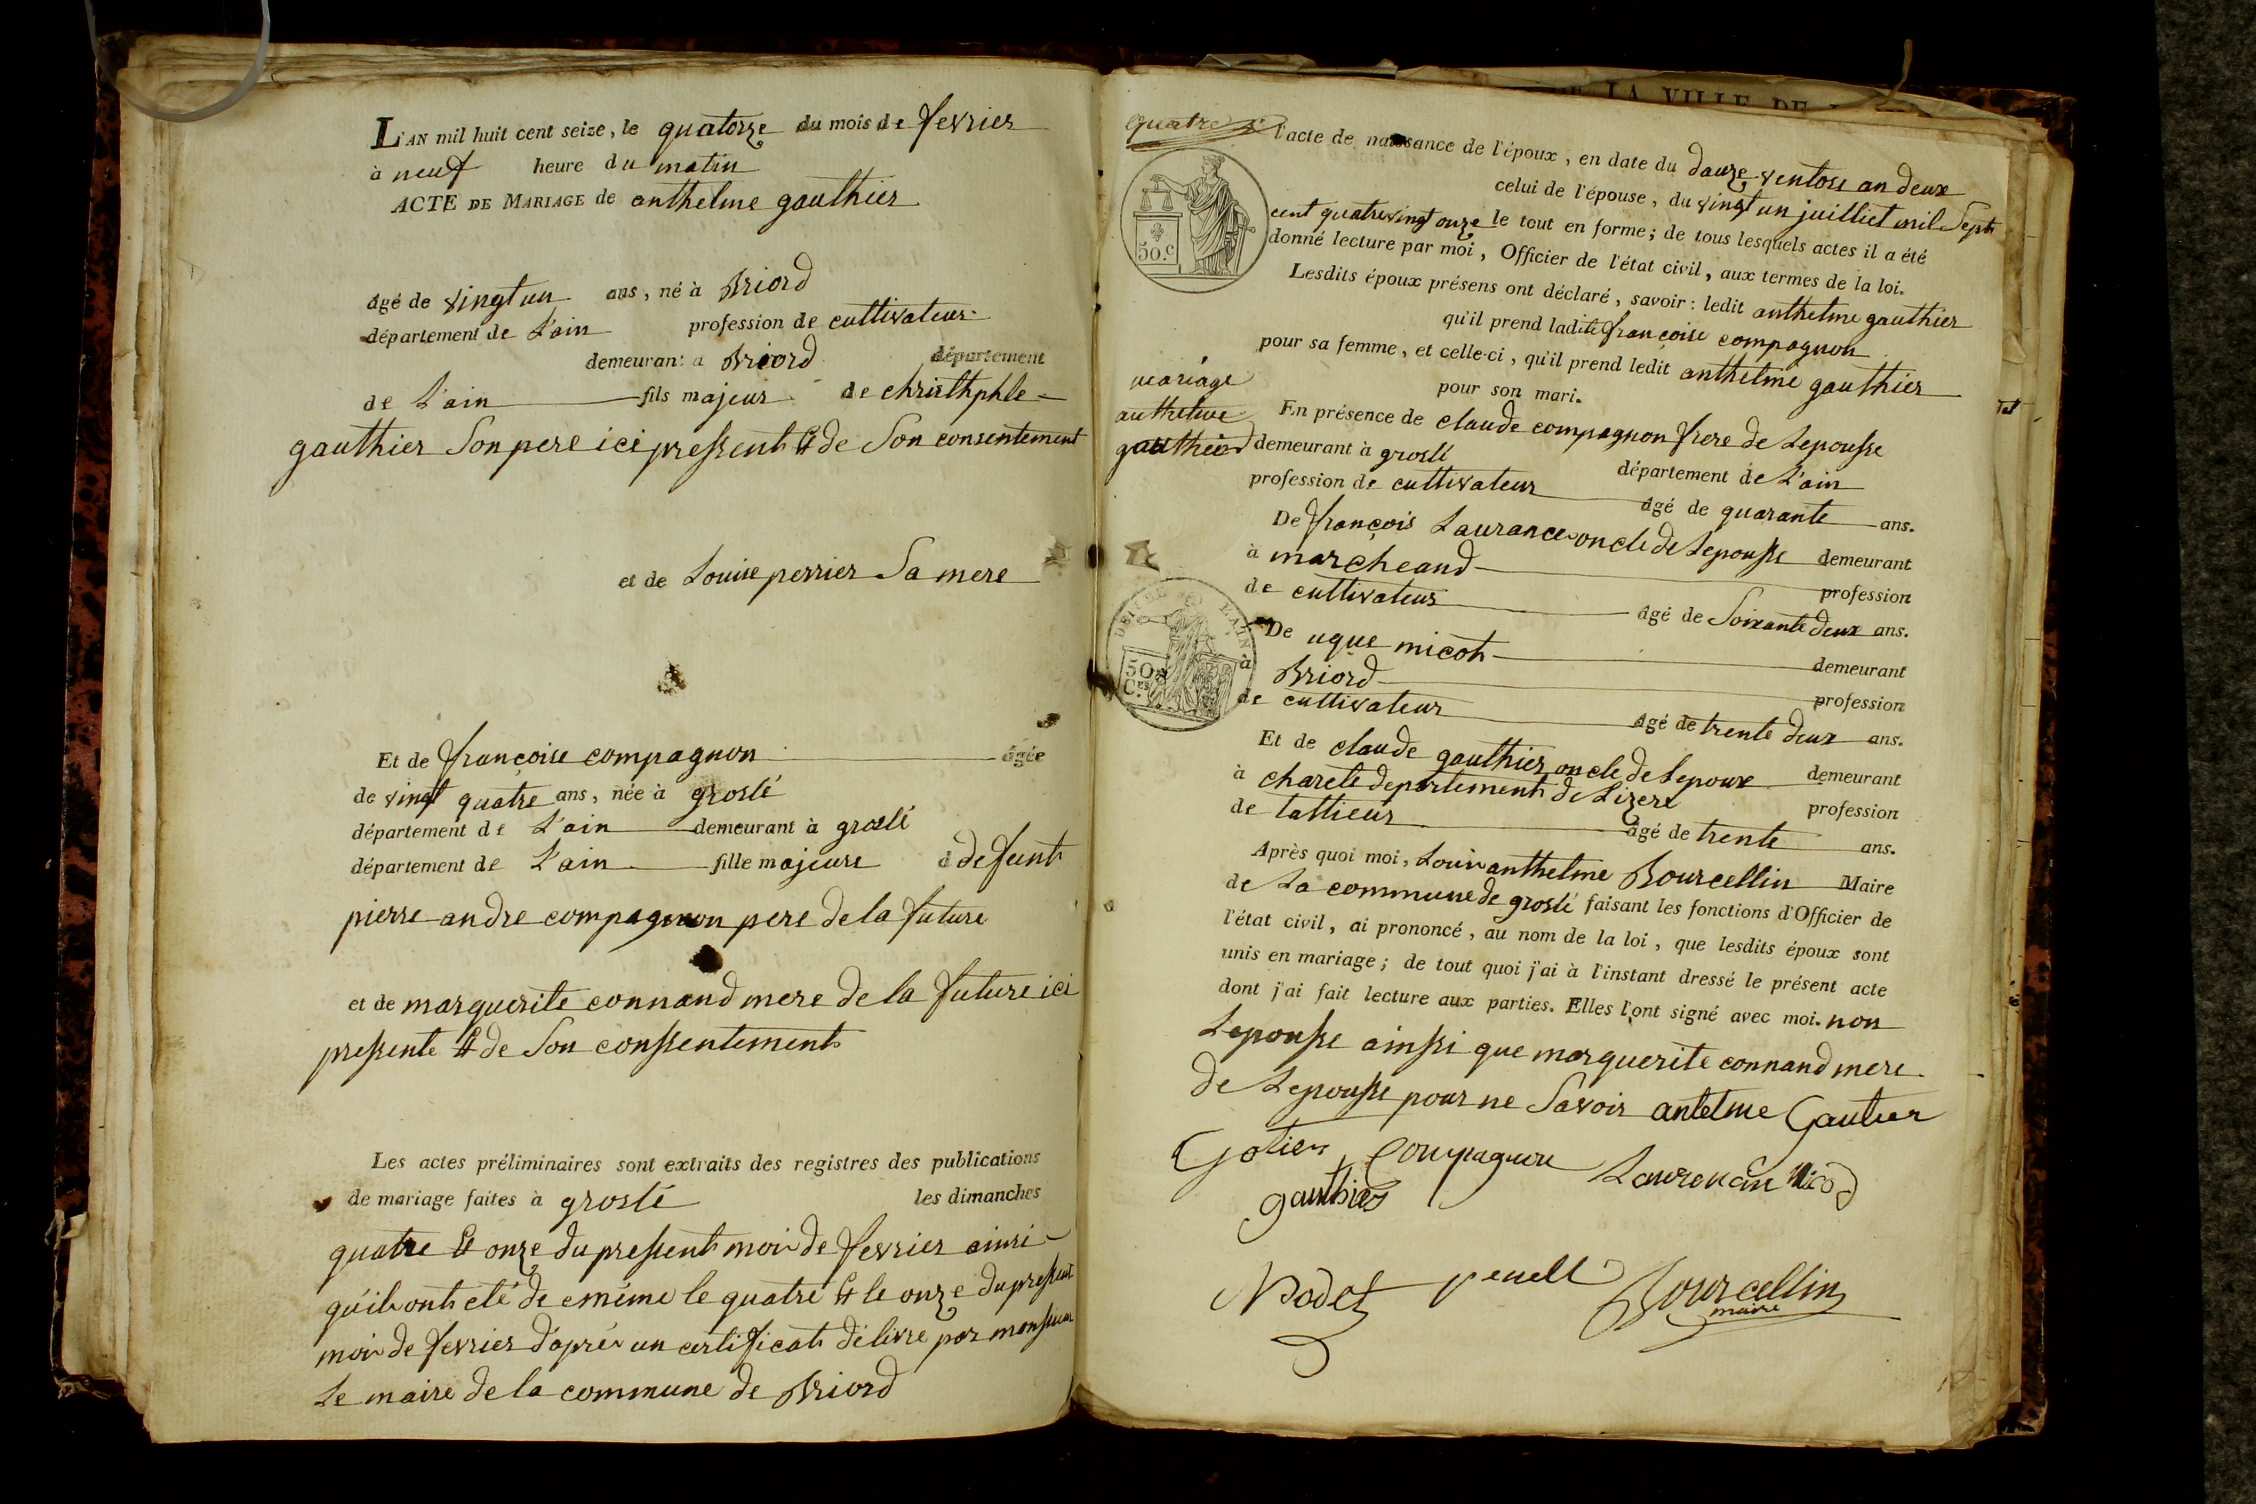 L'AN mil huit cent seize, le quatorze du mois de fevrier
à neuf heure du matin
ACTE DE MARIAGE de anthelme gauthier
âgé de vingt un ans, né à Briord
département de L'ain profession de cultivateur
demeurant a Briord département
de L'ain fils majeur de christhphle
gauthier Son pere ici pressent et de Son consentement
et de Louise perrier Sa mere
Et de françoise compagnon âgée
de vingt quatre ans, née à groslé
département de L'ain demeurant à groslé
département de L'ain fille majeure d defunt
pierre andre compagnon pere de la future
et de marguerite connand mere de la future ici
pressente et de Son conssentement
Les actes préliminaires sont extraits des registres des publications
de mariage faites à groslé les dimanches
quatre et onze du pressent mois de fevrier ainsi
qu'ils ont eté de emême le quatre et le onze du pressent
mois de fevrier d'aprés un certificat délivre par monssieur
Le maire de la commune de Briord
quatre
l'acte de naissance de l'époux, en date du douze ventose an deux
celui de l'épouse, du vingt un juilliet mil Sept
cent quatre vingt onze le tout en forme; de tous lesquels actes il a été
donné lecture par moi, Officier de l'état civil, aux termes de la loi.
50.c
Lesdits époux présens ont déclaré, savoir: ledit anthelme gauthier
qu'il prend ladite françoise compagnon
pour sa femme, et celle-ci, qu'il prend ledit anthelme gauthier
pour son mari.
mariage
anthelme
gauthier
En présence de claude compagnon frere de Lepousse
demeurant à groslé département de L'ain
profession de cultivateur âgé de quarante ans.
De françois Laurance oncle de Lepousse demeurant
à marcheand profession
de cultivateur âgé de Soixante deux ans.
50
C.es
L'AIN
De uque micot demeurant
à Briord profession
de cultivateur âgé de trente deux ans.
Et de claude gauthier oncle de Lepoux demeurant
à charete departement de Lizere profession
de tallieur âgé de trente ans.
Après quoi moi, Louis anthelme Bourcellin Maire
de La commune de groslé faisant les fonctions d'Officier de
l'état civil, ai prononcé, au nom de la loi, que lesdits époux sont
unis en mariage; de tout quoi j'ai à l'instant dressé le présent acte
dont j'ai fait lecture aux parties. Elles l'ont signé avec moi. non
Lepousse ainssi que marguerite connand mere
de Lepousse pour ne Savoir antelme Gautier
Gotier Compagnon Laurenain Micod
gauthier
Nodet Bourcellin
maire